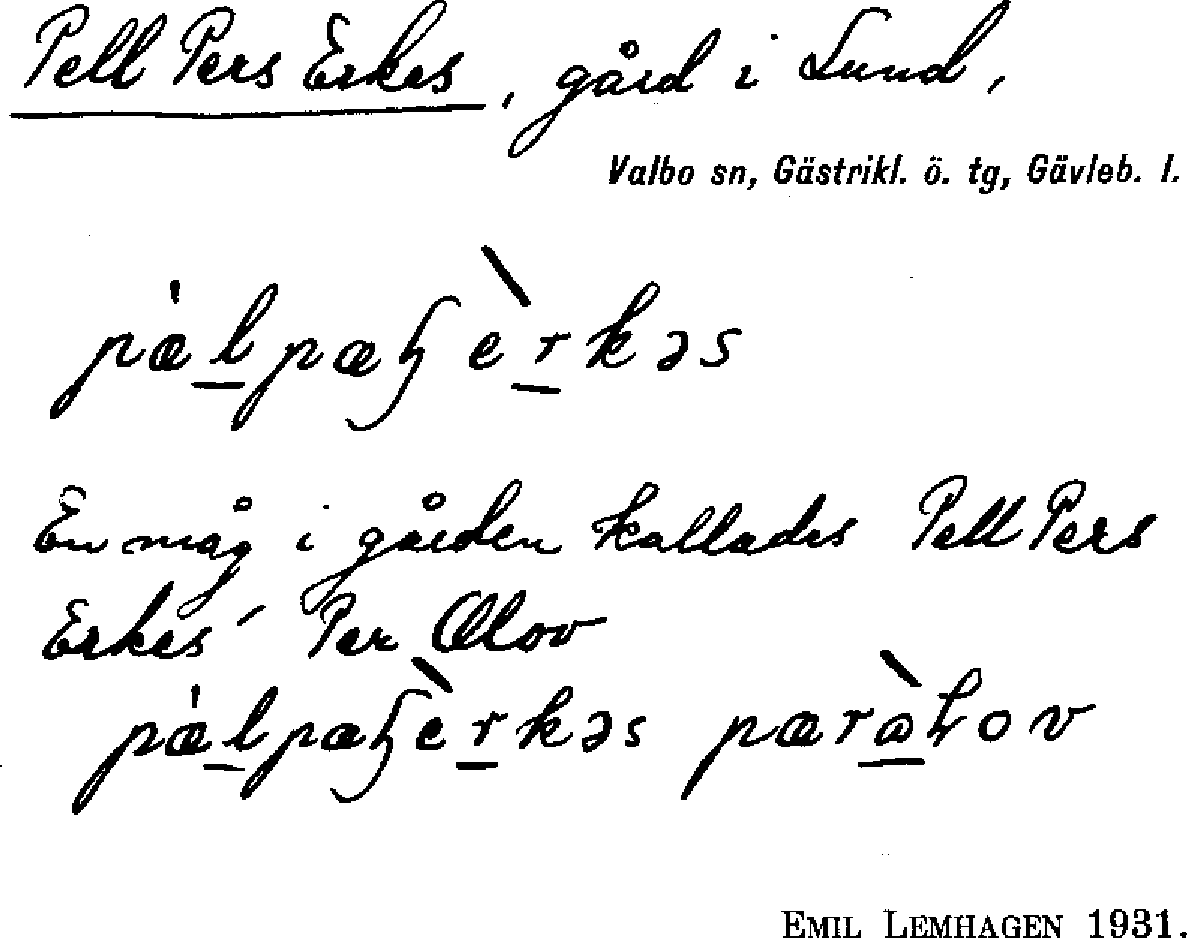 Pell Pers Erkes, gård i Lund,
Valbo sn, Gästrikl. ö. tg, Gävleb. l.
pæ̀lpæʂèrkəs
En måg i gården kallades Pell Pers
Erkes' Per Olov
pæ̀lpæʂèrkəs pæràɽov
EMIL LEMHAGEN 1931.